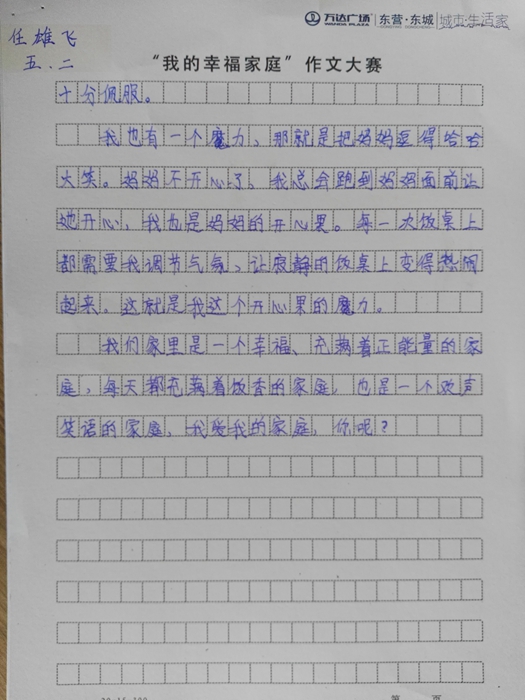 万达广场 WANDA PLAZA 东营·东城 城市·生活家
任雄飞
五.二
“我的幸福家庭”作文大赛
十分佩服。
我也有一个魔力，那就是把妈妈逗得哈哈
大笑。妈妈不开心了，我总会跑到妈妈面前让
她开心，我也是妈妈的开心果。每一次饭桌上
都需要我调节气氛，让寂静的饭桌上变得热闹
起来。这就是我这个开心果的魔力。
我们家里是一个幸福、充满着正能量的家
庭，每天都充满着饭香的家庭，也是一个欢声
笑语的家庭，我爱我的家庭，你呢？
第 页